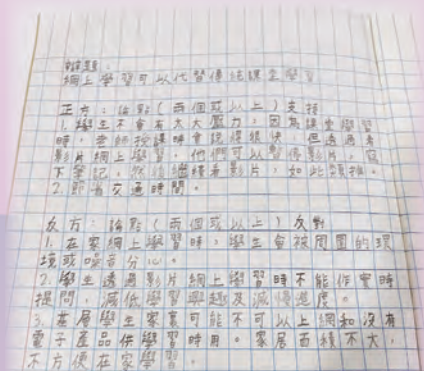 辯題：
網上學習可以代替傳統課堂學習
正方：論點（兩個或以上）支持
1. 學生不會有太大壓力，因為課堂學習
時，老師授課時會說得很快，但透過看
影片網上學習，他們可以暫停影片，寫
下筆記，然後繼續看影片，如此類推。
2. 節省交通時間。
反方：論點（兩個或以上）反對
1. 在家網上學習時，學生會被周圍的環
境或噪音分心。
2. 學生透過影片網上學習時不能作實時
提問，減低學習興趣及減慢進度。
3. 基層學生家裏可能不可以上網和沒有
電子產品供學習時用。家居面積不大，
不方便在家學習。